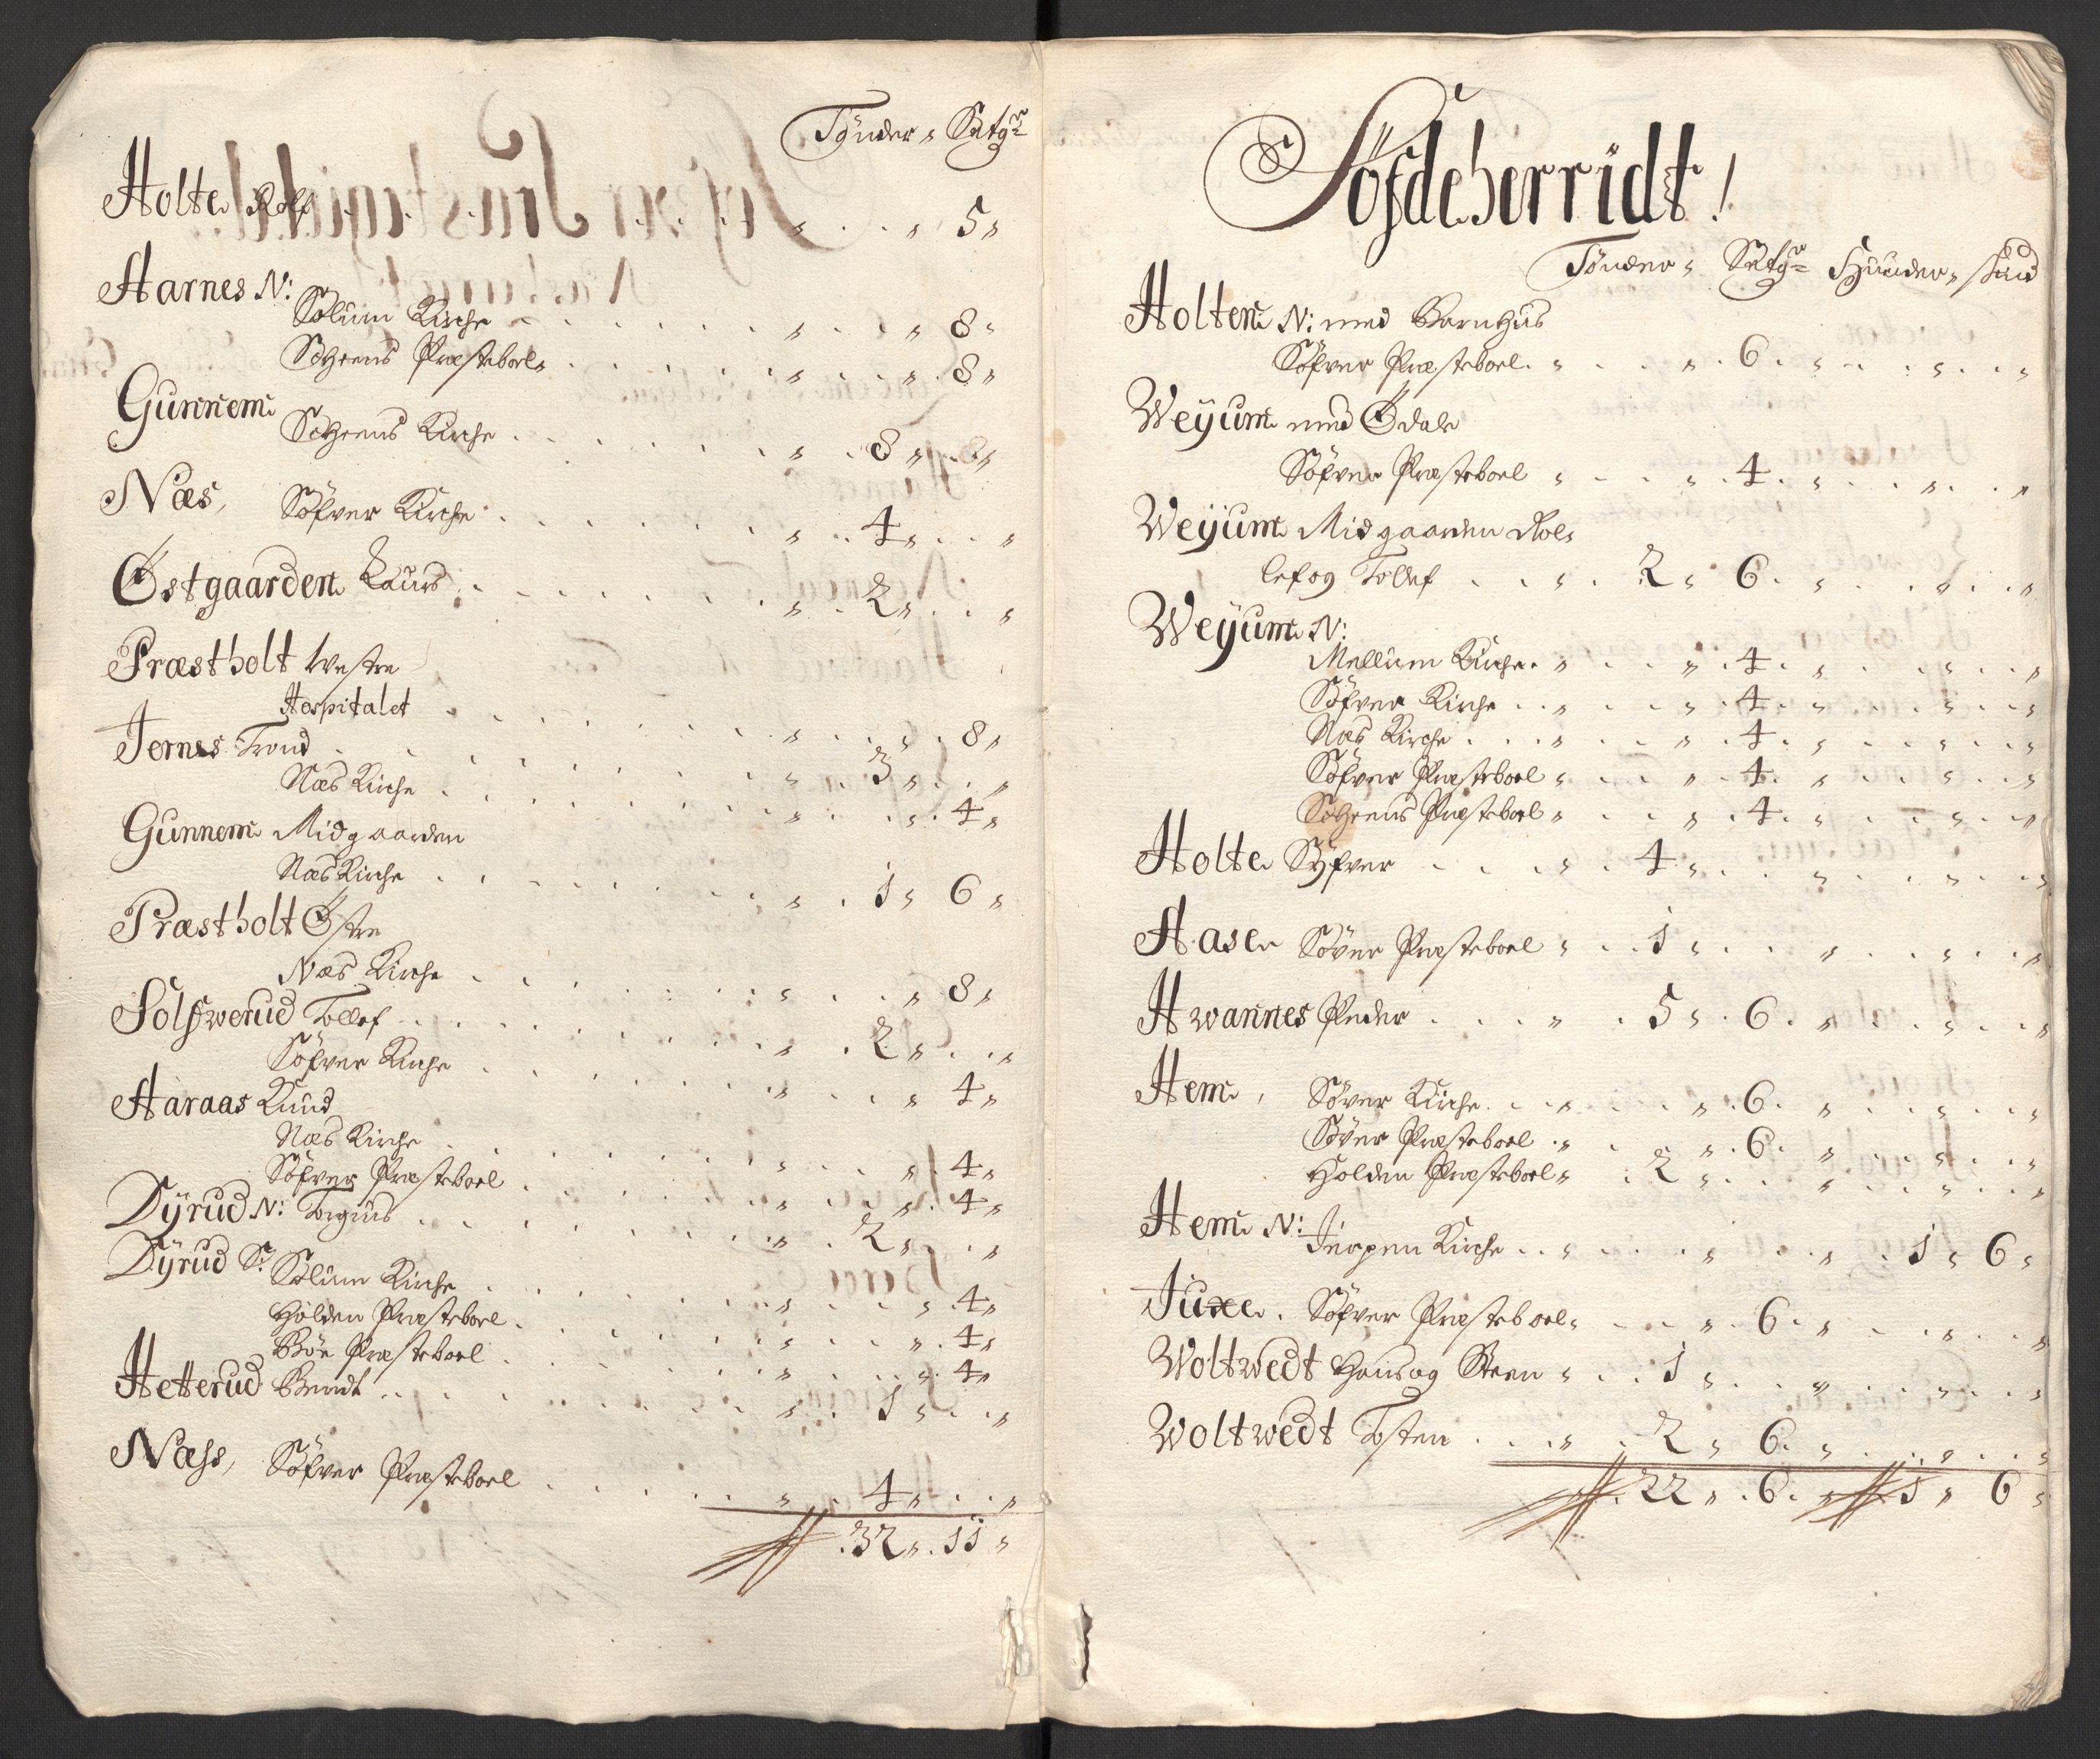 Tønder, Setg:r
Holte Rolf . . . . " . . " 5 "
Aarnes N:
Solum Kirche . . . . " . . " 8 "
Scheens Præsteboel . . . . " . . " 8 "
Gunnem
Scheens Kirche . . . . " . 8 " . 8 "
Næs, Søfver Kirche . . . . " . . 4 " . . "
Østgaarden Laurs . . . . " . 2 " . . "
Præstholt Westre
Hospitalet . . . . " . . " . 8 "
Jernes Trond . . . . " . 3 " . . "
Næs Kirche . . . . " . . " . 4 "
Gunnem Midgaarden
Næs Kirche . . . . " . 1 " 6 "
Præstholt Østre
Næs Kirche . . . . " . . " 8 "
Solfwerud Tollef . . . . " . 2 " . . "
Søfver Kirche . . . . " . . " 4 "
Aaraas Knud
Næs Kirche . . . . " . . " . 4 "
Søfver Præsteboel . . . . " . . " . 4 "
Dyrud N: Torgius . . . . " . 2 " . . "
Dyrud S:
Solum Kirche . . . . " . . " . 4 "
Holden Præsteboel . . . . " . . " . 4 "
Bøe Præsteboel . . . . " . . " . 4 "
Hetterud Bendt . . . . " . 1 " . . "
Næss, Søfver Præsteboel . . . . " . 4 " . . "
. 32 " . 11 "
Söfdeherridt!
Tønder, Setg:r Hunder, skind
Holtem N: med Barnhus
Søfver Præsteboel . " . . " . 6 . " . . " . . "
Weyum med Ødale
Søfver Præsteboel " . . " . 4 . " . . " . . "
Weyum Midgaarden Rol,
lef og Tollef . . " . 2 " 6 . " . . " . . "
Weyum N:
Mellum Kirche . " . . " . 4 . " . . " . . "
Søfver Kirche . . " . . " . 4 . " . . " . . "
Næs Kirche . . . " . . " . 4 . " . . " . . "
Søfver Præsteboel " . . " . 4 . " . . " . . "
Scheens Præsteboel " . . " . 4 . " . . " . . "
Holte Syfver . . . " . 4 " . . " . . " . . "
Aase Søver Præsteboel " . . 1 " . . " . . " . . "
Hwannes Peder . . . " . 5 " . 6 . " . . " . . "
Hem, Søver Kirche . . " . . " . 6 . " . . " . . "
Søver Præsteboel . " . . " . 6 . " . . " . . "
Holden Præsteboel " . 2 " . . " . . " . . "
Hem N:
Jerpen Kirche . . " . . " . . " . 1 " 6 "
Juxe . Søfver Præsteboel " . . " . 6 . " . . " . . "
Woltwedt Hans og Steen " . . 1 " . . " . . " . . "
Woltwedt Tosten . . " . 2 " 6 . " . . " . . "
. 22 " . 6 . " 1 " 6 "